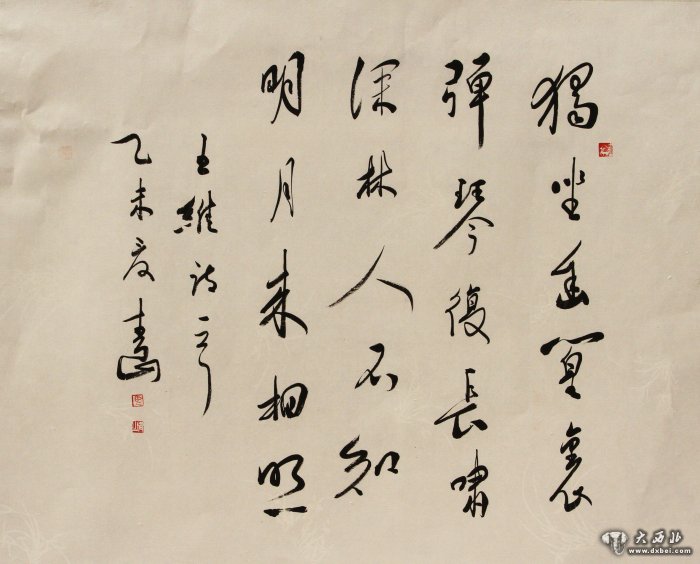 獨坐幽篁裏
彈琴復長嘯
深林人不知
明月来相照
王維詩一首
乙未
大西北
www.dxbei.com